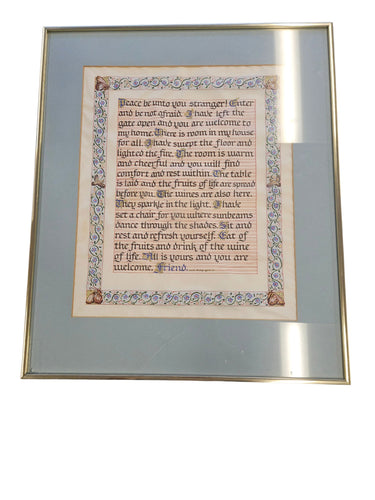 Peace be unto you stranger! Enter
and be not afraid. I have left the
gate open and you are welcome to
my home. There is room in my house
for all. I have swept the floor and
lighted the fire. The room is warm
and cheerful and you will find
comfort and rest within. The table
is laid and the fruits of life are spread
before you. The wines are also here.
They sparkle in the light. I have
set a chair for you where sunbeams
dance through the shades. Sit and
rest and refresh yourself. Eat of
the fruits and drink of the wine
of life. All is yours and you are
welcome. Friend.